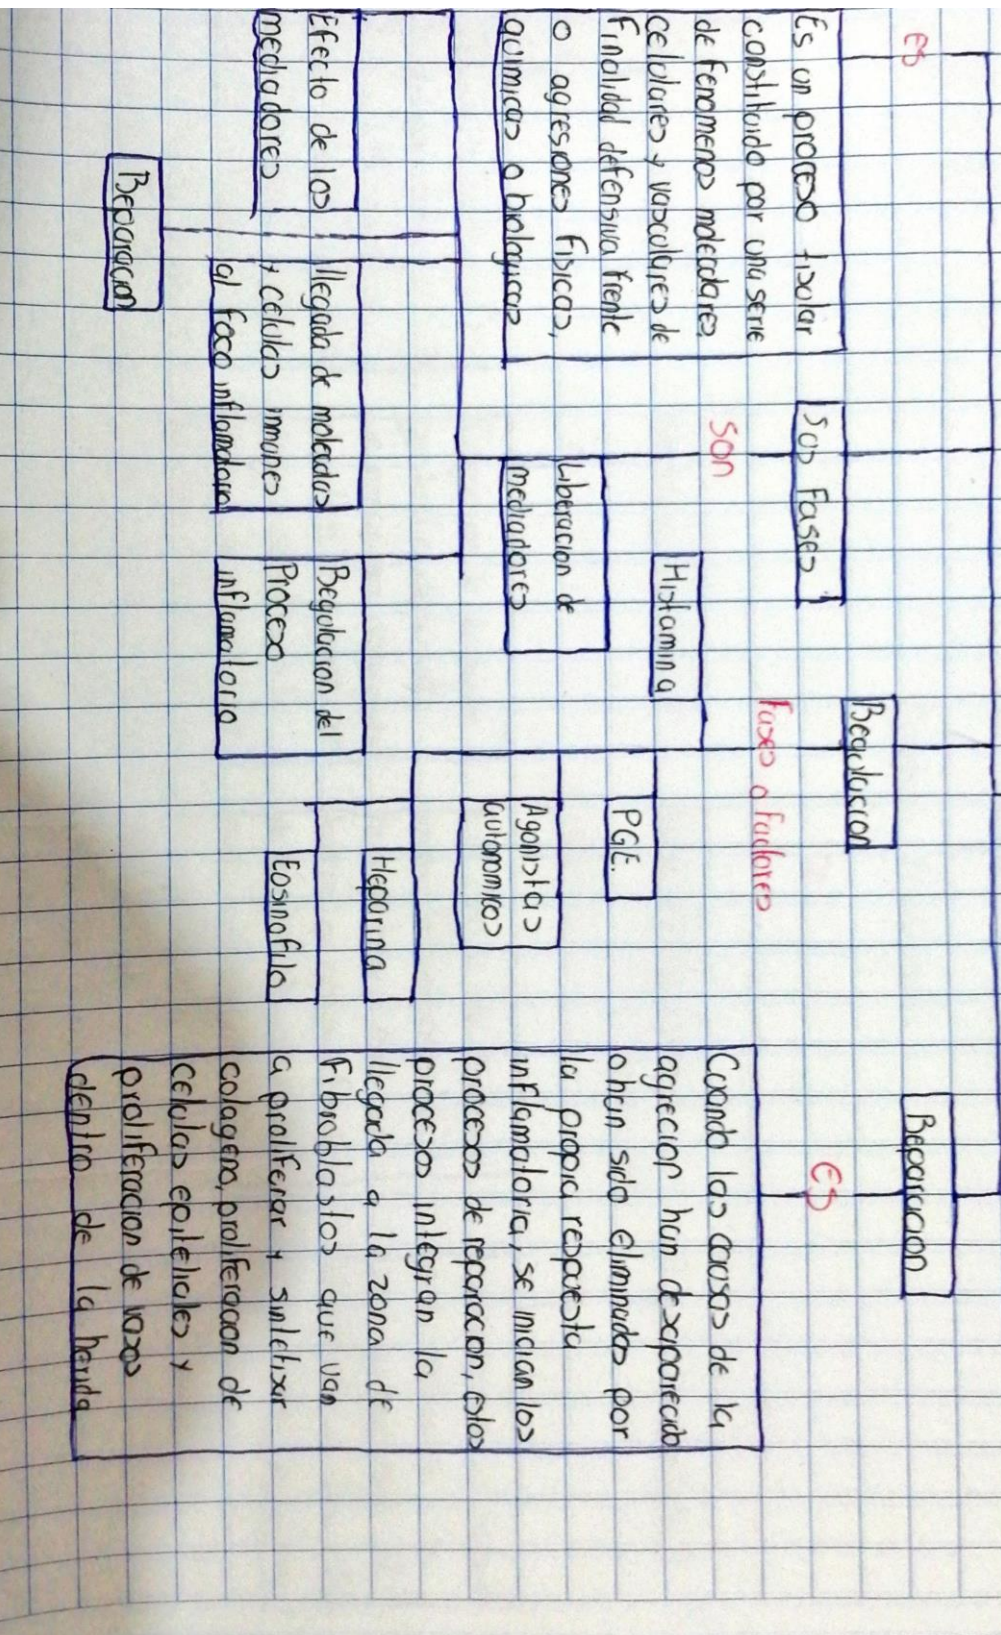 es
Es un proceso tisular
constituido por una serie
de fenomenos moleculares
celulares y vasculares de
Finalidad defensiva frente
o agresiones Fisicas,
quimicas o biologicas
Sus Fases
Son
Liberacion de
mediadores
Efecto de los
mediadores
llegada de moleculas
y celulas inmunes
al foco inflamatorio
Regulacion del
Proceso
inflamatorio
Reparacion
Regulacion
Fases o factores
Histamina
PGE.
Agonistas
autonomicos
Heparina
Eosinofilo
Reparacion
Es
Cuando las causas de la
agrecion han desaparecido
o han sido eliminadas por
la propia respuesta
inflamatoria, se inician los
procesos de reparacion, estos
procesos integran la
llegada a la zona de
Fibroblastos que van
a proliferar y sintetixar
colageno, proliferacion de
celulas epiteliales y
proliferacion de vasos
dentro de la herida